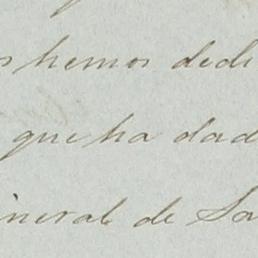 s hemos dedi
que ha dad
ineral de Sa